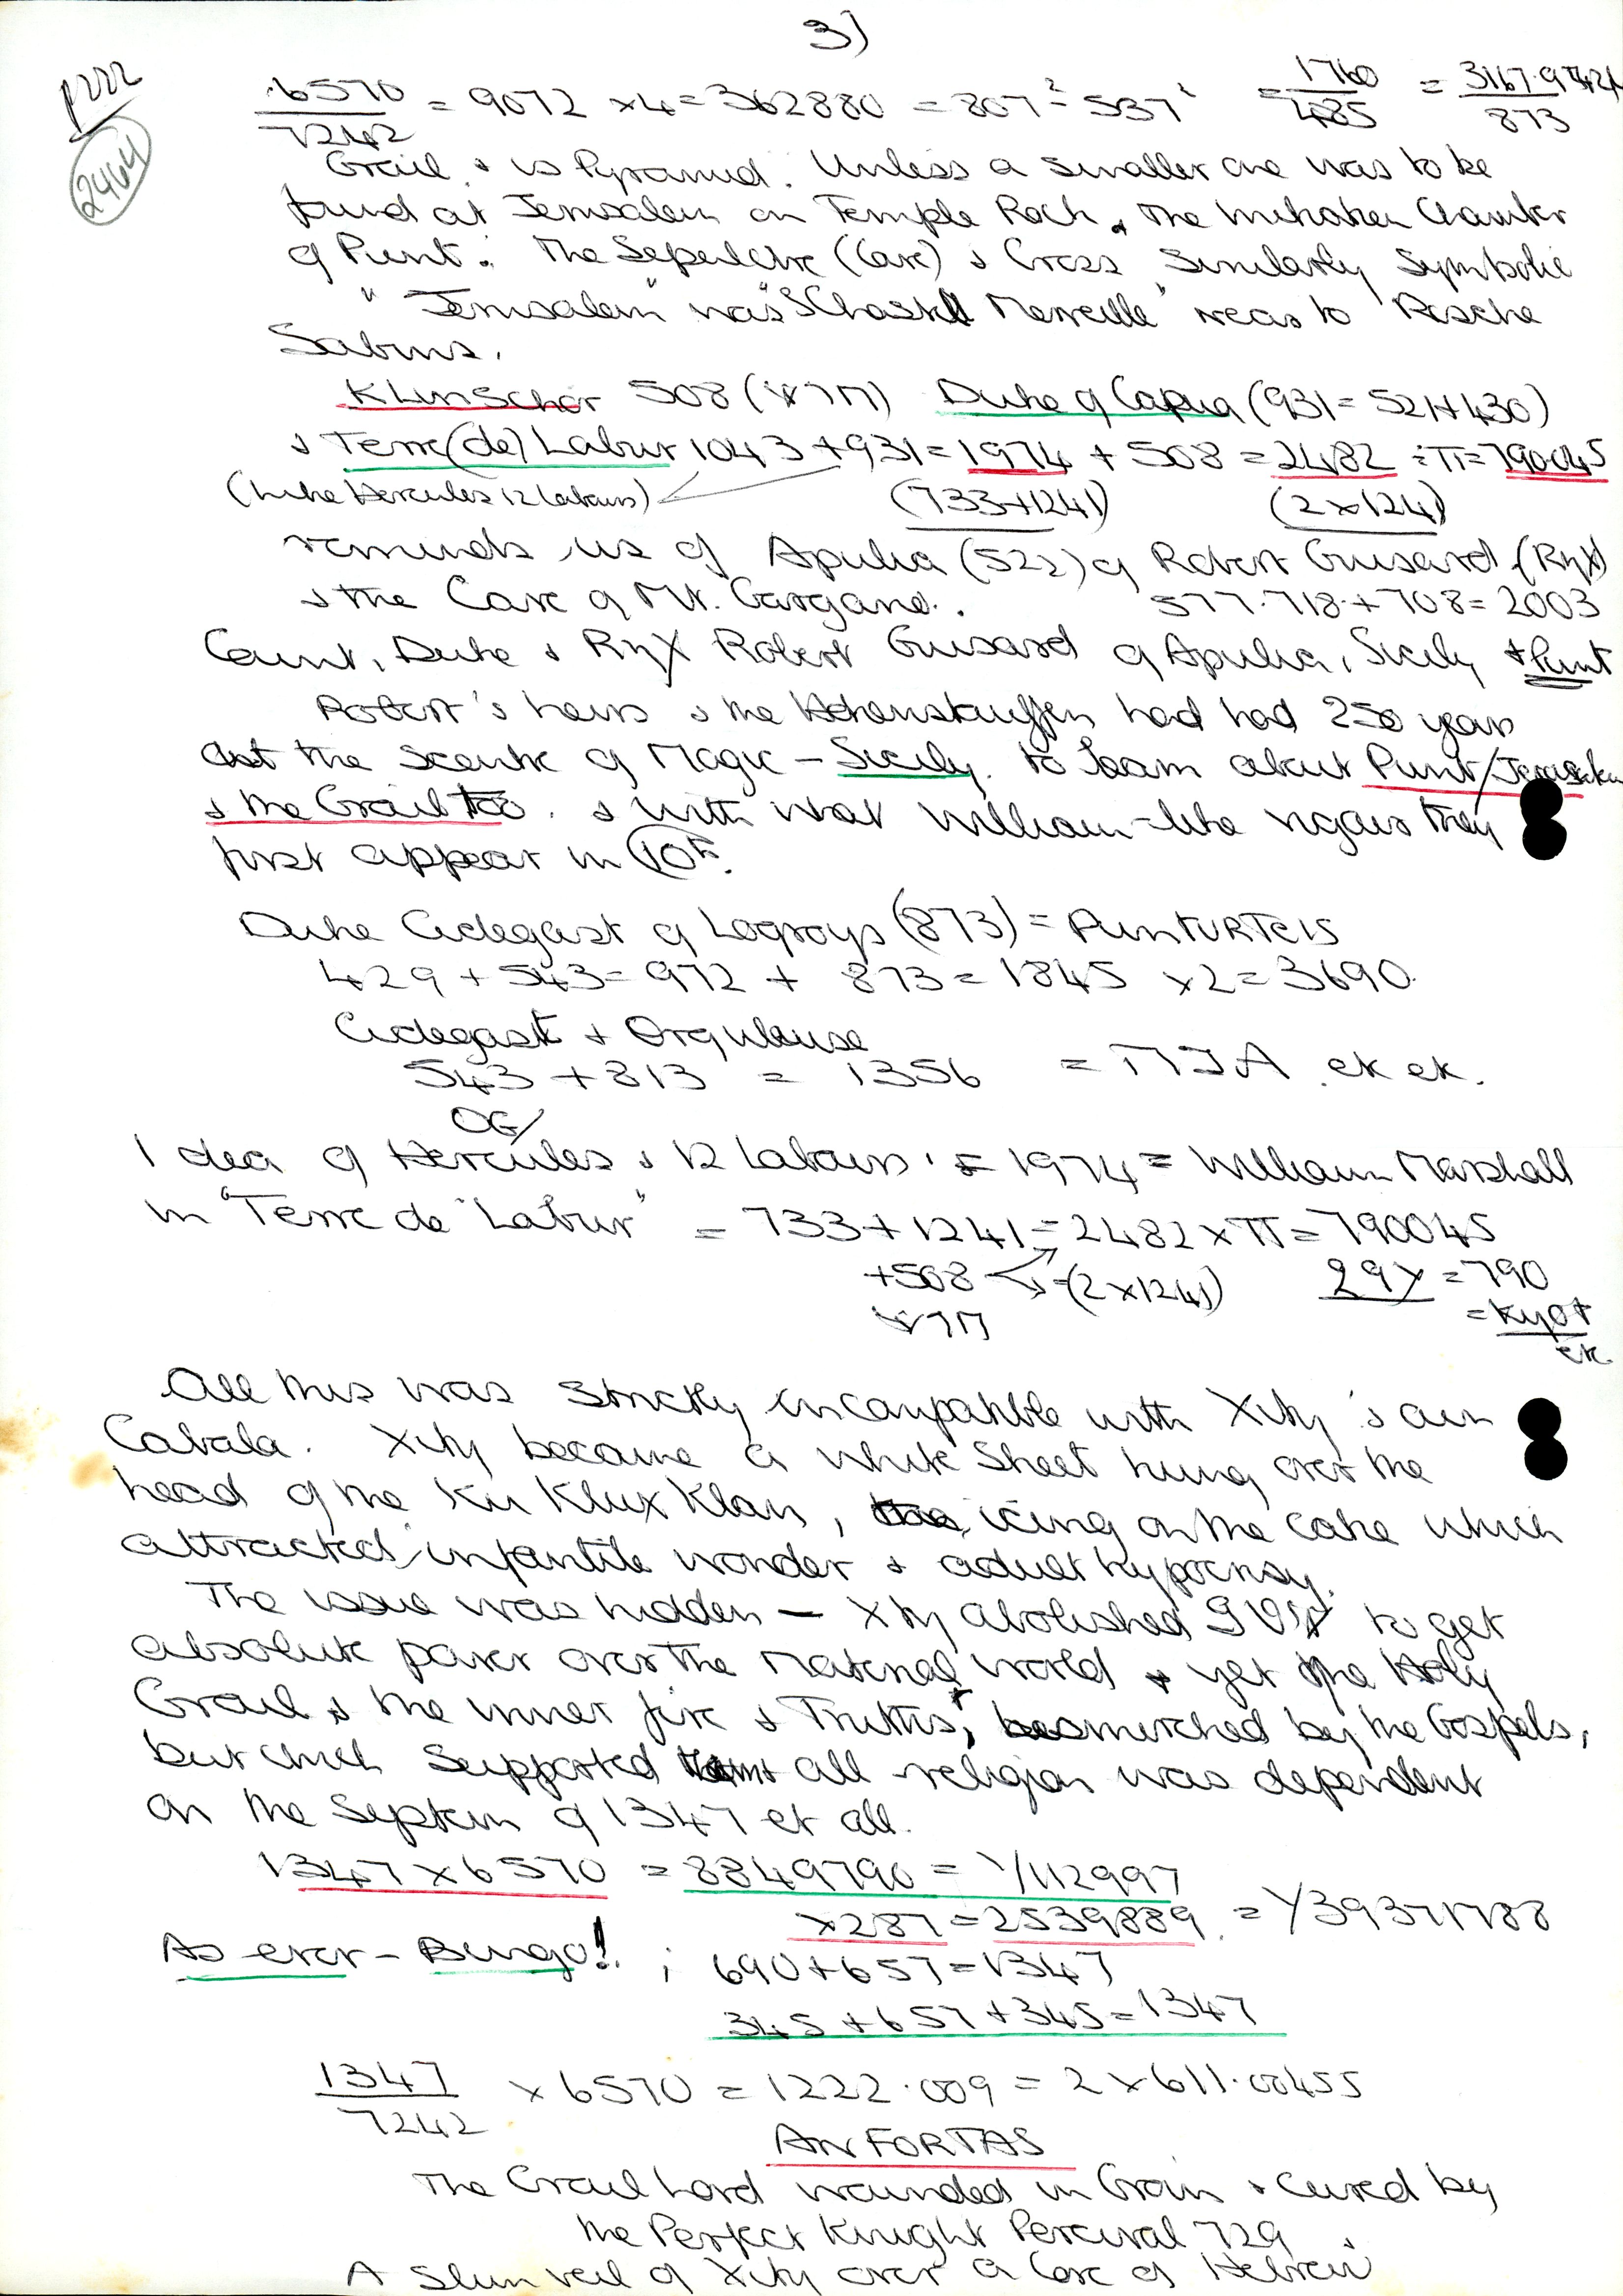 3)
p222
2464
.6570 / 7242 = 9072 x4 = 362880 = 807² - 537² = 1760 / 485 = 3167.97424 / 873
Grail & its Pyramid. Unless a smaller one was to be
found at Jerusalem on Temple Rock, the Chamber
of Punt. The Sepulchre (Cave) & Cross similarly symbolic
"Jerusalem" was "Schastel Merveille" near to Rosche
Sabins.
Klinschor 508 Duke of Capua (931 = 521+430)
& Terre (de) Labur 1043 + 931 = 1974 + 508 = 2482 ÷ π = 790.045
(like Hercules 12 labours) (733+1241) (2x1241)
reminds us of Apulia (522) of Robert Guisard (RηX)
& the Cave of Mt. Gargano. 577.718.+708=2003
Count, Duke & RηX Robert Guisard of Apulia, Sicily & Punt
Robert's heirs & the Hohenstauffen had had 250 years
at the Centre of Magic - Sicily. to learn about Punt/Jerusalem
& the Grail too. & with what William-like vigour they
first appear in
Duke Cidegast of Logroys (873) = PUNTURTEIS
429 + 543 = 972 + 873 = 1845 x2 = 3690.
Cidegast + Orgulouse
543 + 813 = 1356 = etc etc.
OG/
Idea of Hercules & 12 Labours = 1974 = William Marshall
in "Terre de Labur" = 733 + 1241 = 2482 x π = 790045
+508 (2x1241) = 790
= Kyot
etc.
All this was strictly incompatible with Xity's own
Cabala. Xity became a white sheet hung over the
head of the Ku Klux Klan, icing on the cake which
attracted infantile wonder & adult hypocrisy.
The issue was hidden - Xity abolished to get
absolute power over the Material World & yet the Holy
Grail & the inner fire & Truths, besmirched by the Gospels,
but which supported all religion was dependent
on the system of 1347 et all.
1347 x 6570 = 8849790 = Y112997
x287 = 2539889 = Y39371788
As ever - Bingo! ; 690+657 = 1347
345 + 657 + 345 = 1347
1347 / 7242 x 6570 = 1222.009 = 2 x 611.00455
ANFORTAS
The Grail Lord wounded in Groin & cured by
the Perfect Knight Percival 729
A slim veil of Xity over a Core of Hebrew